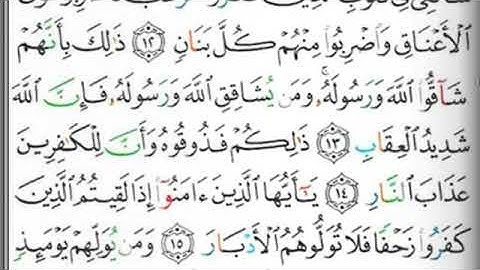 سَأُلْقِي فِي قُلُوبِ الَّذِينَ كَفَرُوا
الْأَعْنَاقِ وَاضْرِبُوا مِنْهُمْ كُلَّ بَنَانٍ ١٢ ذَٰلِكَ بِأَنَّهُمْ
شَآقُّوا اللَّهَ وَرَسُولَهُۥ وَمَن يُشَاقِقِ اللَّهَ وَرَسُولَهُۥ فَإِنَّ اللَّهَ
شَدِيدُ الْعِقَابِ ١٣ ذَٰلِكُمْ فَذُوقُوهُ وَأَنَّ لِلْكَٰفِرِينَ
عَذَابَ النَّارِ ١٤ يَٰٓأَيُّهَا الَّذِينَ ءَامَنُوٓا إِذَا لَقِيتُمُ الَّذِينَ
كَفَرُوا زَحْفًا فَلَا تُوَلُّوهُمُ الْأَدْبَارَ ١٥ وَمَن يُوَلِّهِمْ يَوْمَئِذٍ